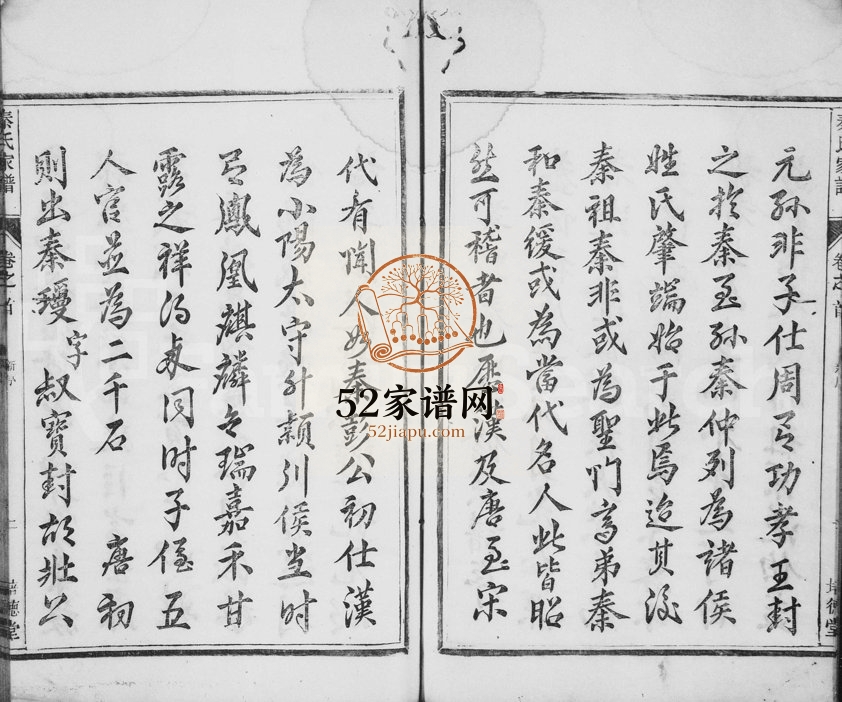 元孫非子仕周有功孝王封
之於秦至孫秦仲列為諸侯
姓氏肇端始于此焉迨其後
秦祖秦非或為聖門高弟秦
和秦緩或為當代名人此皆昭
然可稽者也歷漢及唐至宋
代有聞人如秦彭公初仕漢
為小陽太守升潁川侯其時
有鳳凰麒麟之瑞嘉禾甘
露之祥 同時子侄五
人官並為二千石 唐初
則出秦瓊字叔寶封胡壯公
秦氏家譜
卷之首
培德堂
秦氏家譜
卷之首
培德堂
52家谱网
52jiapu.com